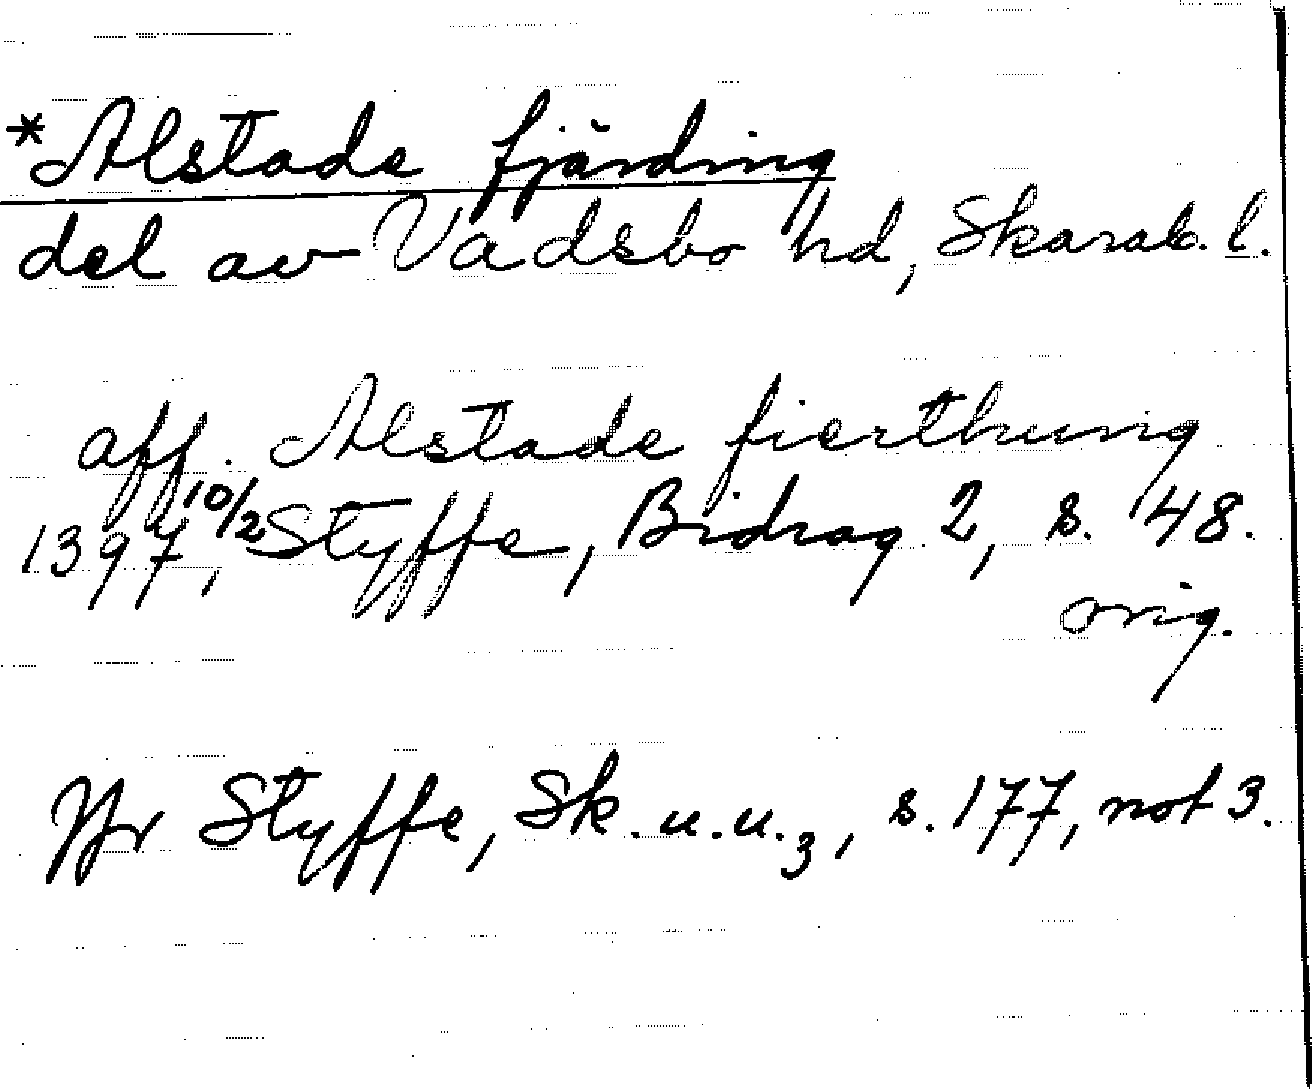 *Alstade fjärding
del av Vadsbo hd, Skarab. l.
aff. Alstade fierthung
1397, 10/2 Styffe, Bidrag 2, s. 48.
orig.
Jfr Styffe, Sk. u. u. 3, s. 177, not 3.